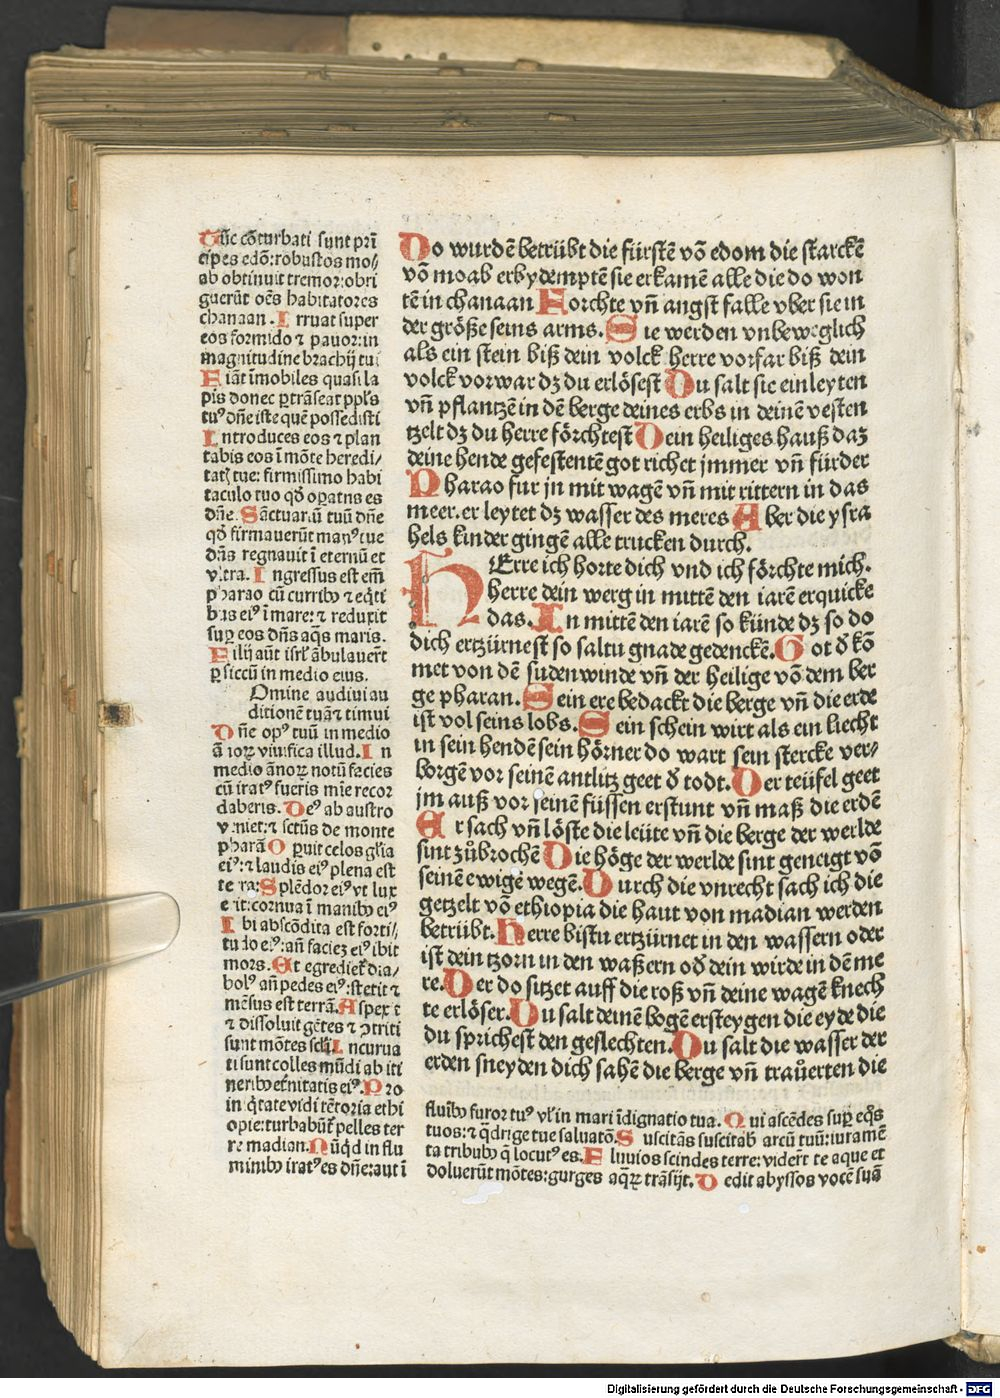 Tūc cōturbati sunt prī
cipes edō: robustos mo⸗
ab obtinuit tremor: obri
guerūt oēs habitatores
chanaan. Irruat super
eos formido ⁊ pauor: in
magnitudine brachij tui
Fiāt īmobiles quasi la
pis donec ꝑtrāseat ppl's
tu⁹ dn̄e iste quē possedisti
Introduces eos ⁊ plan
tabis eos ī mōte heredi⸗
tat tue: firmissimo habi
taculo tuo qd̄ oꝑatus es
dn̄e. Sāctuariū tuū dn̄e
qd̄ firmauerūt man⁹ tue
dn̄s regnauit ī eternū et
vltra. Ingressus est em̄
pharao cū currib⁹ ⁊ eq̄ti
bus ei⁹ ī mare: ⁊ reduxit
suꝑ eos dn̄s aq̄s maris.
Filij aūt isrl' ābulauer̄t
ꝑ siccū in medio eius.
Omine audiui au
ditionē tuā ⁊ timui
Dn̄e op⁹ tuū in medio
ānoꝝ viuifica illud. In
medio ānoꝝ notū facies
cū irat⁹ fueris mīe recor
daberis. De⁹ ab austro
veniet: ⁊ sctūs de monte
pharā Oꝑuit celos gl'ia
ei⁹: ⁊ laudis ei⁹ plena est
terra: Splēdor ei⁹ vt lux
erit: cornua ī manib⁹ ei⁹
Ibi abscōdita est forti⸗
tudo ei⁹: an̄ faciez ei⁹ ibit
mors. Et egrediet̄ dia⸗
bol⁹ an̄ pedes ei⁹: stetit ⁊
mēsus est terrā. Aspexit
⁊ dissoluit gētes ⁊ ꝯtriti
sunt mōtes scl'i. Incurua
ti sunt colles mūdi ab iti
nerib⁹ et̄nitatis ei⁹. Pro
iniq̄tate vidi tētoria ethi
opie: turbabūt̄ pelles ter
re madian. Nūqd̄ in flu
minib⁹ irat⁹ es dn̄e: aut ī
Do wurdē betrübt die fürstē vō edom die starckē
vō moab erbydemptē sie erkamē alle die do won
tē in chanaan Forchte vn̄ angst falle vber sie in
der größe seins arms. Sie werden vnbeweglich
als ein stein biß dein volck herre vorfar biß dein
volck vorwar dz du erlösest Du salt sie einleyten
vn̄ pflantzē in dē berge deines erbs in deinē vesten
tzelt dz du herre förchtest Dein heiliges hauß daz
deine hende gefestentē got richet jmmer vn̄ fürder
Pharao fur jn mit wagē vn̄ mit rittern in das
meer. er leytet dz wasser des meres Aber die ysra
hels kinder gingē alle trucken durch.
HErre ich horte dich vnd ich förchte mich.
herre dein werg in mittē den iarē erquicke
das. In mittē den iarē so künde dz so do
dich ertzürnest so saltu gnade gedenckē. Got d̄ kō
met von dē sudenwinde vn̄ der heilige vō dem ber
ge pharan. Sein ere bedackt die berge vn̄ die erde
ist vol seins lobs. Sein schein wirt als ein liecht
in sein hendē sein hörner do wart sein stercke ver⸗
borgē vor seinē antlitz geet d̄ todt. Der teüfel geet
jm auß vor seinē füssen erstunt vn̄ maß die erdē
Er sach vn̄ löste die leüte vn̄ die berge der werlde
sint zůbrochē Die höge der werlde sint geneigt vō
seinē ewigē wegē. Durch die vnrecht sach ich die
getzelt vō ethiopia die haut von madian werden
betrübt. Herre bistu ertzürnet in den wassern oder
ist dein tzorn in den waßern od̄ dein wirde in dē me
re. Der do sitzet auff die roß vn̄ deine wagē knech
te erlöser. Du salt deinē bogē ersteygen die eyde die
du sprichest den geslechten. Du salt die wasser der
erden sneyden dich sahē die berge vn̄ traůerten die
fluib⁹ furor tu⁹ vl' in mari īdignatio tua. Qui ascēdes suꝑ eq̊s
tuos: ⁊ q̄drige tue saluatō. Suscitās suscitab̄ arcū tuū: iuramē
ta tribub⁹ q̄ locut⁹ es. Fluuios scindes terre: vider̄t te aque et
doluerūt mōtes: gurges aq̄ꝝ trāsijt. Dedit abyssos vocē suā
Digitalisierung gefördert durch die Deutsche Forschungsgemeinschaft - DFG